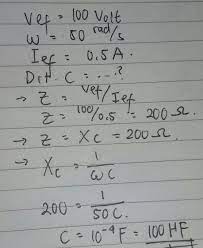 Vef = 100 Volt
W = 50 rad/s
Ief = 0.5 A.
Dit. C = ....?
→ Z = Vef/Ief
Z = 100/0.5 = 200 Ω.
→ Z = Xc = 200 Ω.
→ Xc = 1/ωC
200 = 1/50C.
C = 10⁻⁴ F = 100 µF